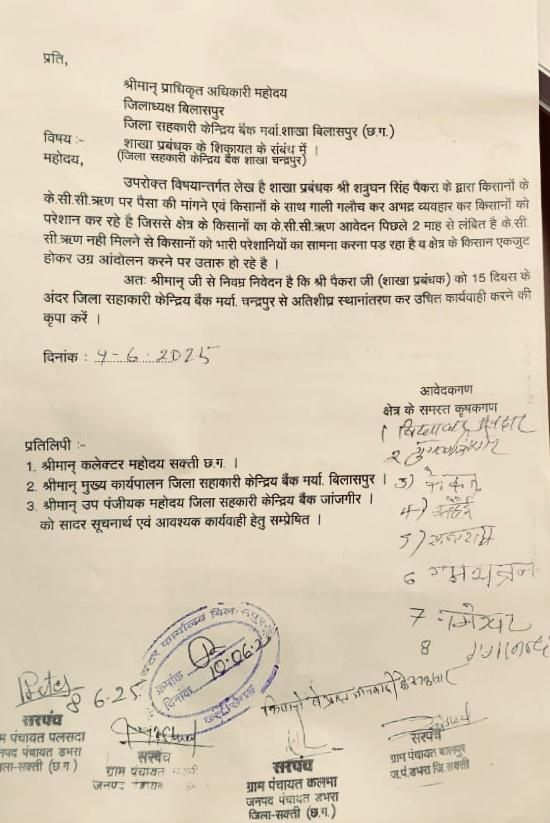 प्रति,
श्रीमान् प्राधिकृत अधिकारी महोदय
जिलाध्यक्ष बिलासपुर
जिला सहकारी केन्द्रिय बैंक मर्या.शाखा बिलासपुर (छ.ग.)
विषय :- शाखा प्रबंधक के शिकायत के संबंध में ।
महोदय, (जिला सहकारी केन्द्रिय बैंक शाखा चन्द्रपुर)
उपरोक्त विषयान्तर्गत लेख है शाखा प्रबंधक श्री शत्रुघन सिंह पैकरा के द्वारा किसानों के
के.सी.सी.ऋण पर पैसा की मांगने एवं किसानों के साथ गाली गलौच कर अभद्र व्यवहार कर किसानों को
परेशान कर रहे है जिससे क्षेत्र के किसानों का के.सी.सी.ऋण आवेदन पिछले 2 माह से लंबित है के.सी.
सी.ऋण नही मिलने से किसानों को भारी परेशानियों का सामना करना पड़ रहा है व क्षेत्र के किसान एकजुट
होकर उग्र आंदोलन करने पर उतारू हो रहे है ।
अतः श्रीमान् जी से निवम्र निवेदन है कि श्री पैकरा जी (शाखा प्रबंधक) को 15 दिवस के
अंदर जिला सहाकारी केन्द्रिय बैंक मर्या. चन्द्रपुर से अतिशीघ्र स्थानांतरण कर उचित कार्यवाही करने की
कृपा करें ।
दिनांक : 9-6.2025
आवेदकगण
क्षेत्र के समस्त कृषकगण
1
2
3)
4)
5)
6
7
8
प्रतिलिपी :-
1. श्रीमान् कलेक्टर महोदय सक्ती छ.ग. ।
2. श्रीमान् मुख्य कार्यपालन जिला सहाकारी केन्द्रिय बैंक मर्या. बिलासपुर ।
3. श्रीमान् उप पंजीयक महोदय जिला सहकारी केन्द्रिय बैंक जांजगीर ।
को सादर सूचनार्थ एवं आवश्यक कार्यवाही हेतु सम्प्रेषित ।
क्रमांक
दिनांक 10.06.2
छत्तीसगढ़
8 6-25
सरपंच
ग्राम पंचायत पलसदा
जनपद पंचायत डभरा
जिला-सक्ती (छ.ग.)
सरपंच
ग्राम पंचायत
जनपद पंचायत
सरपंच
ग्राम पंचायत कलमा
जनपद पंचायत डभरा
जिला-सक्ती (छ.ग.)
सरपंच
ग्राम पंचायत बालपुर
ज.पं.डभरा जि.सक्ती